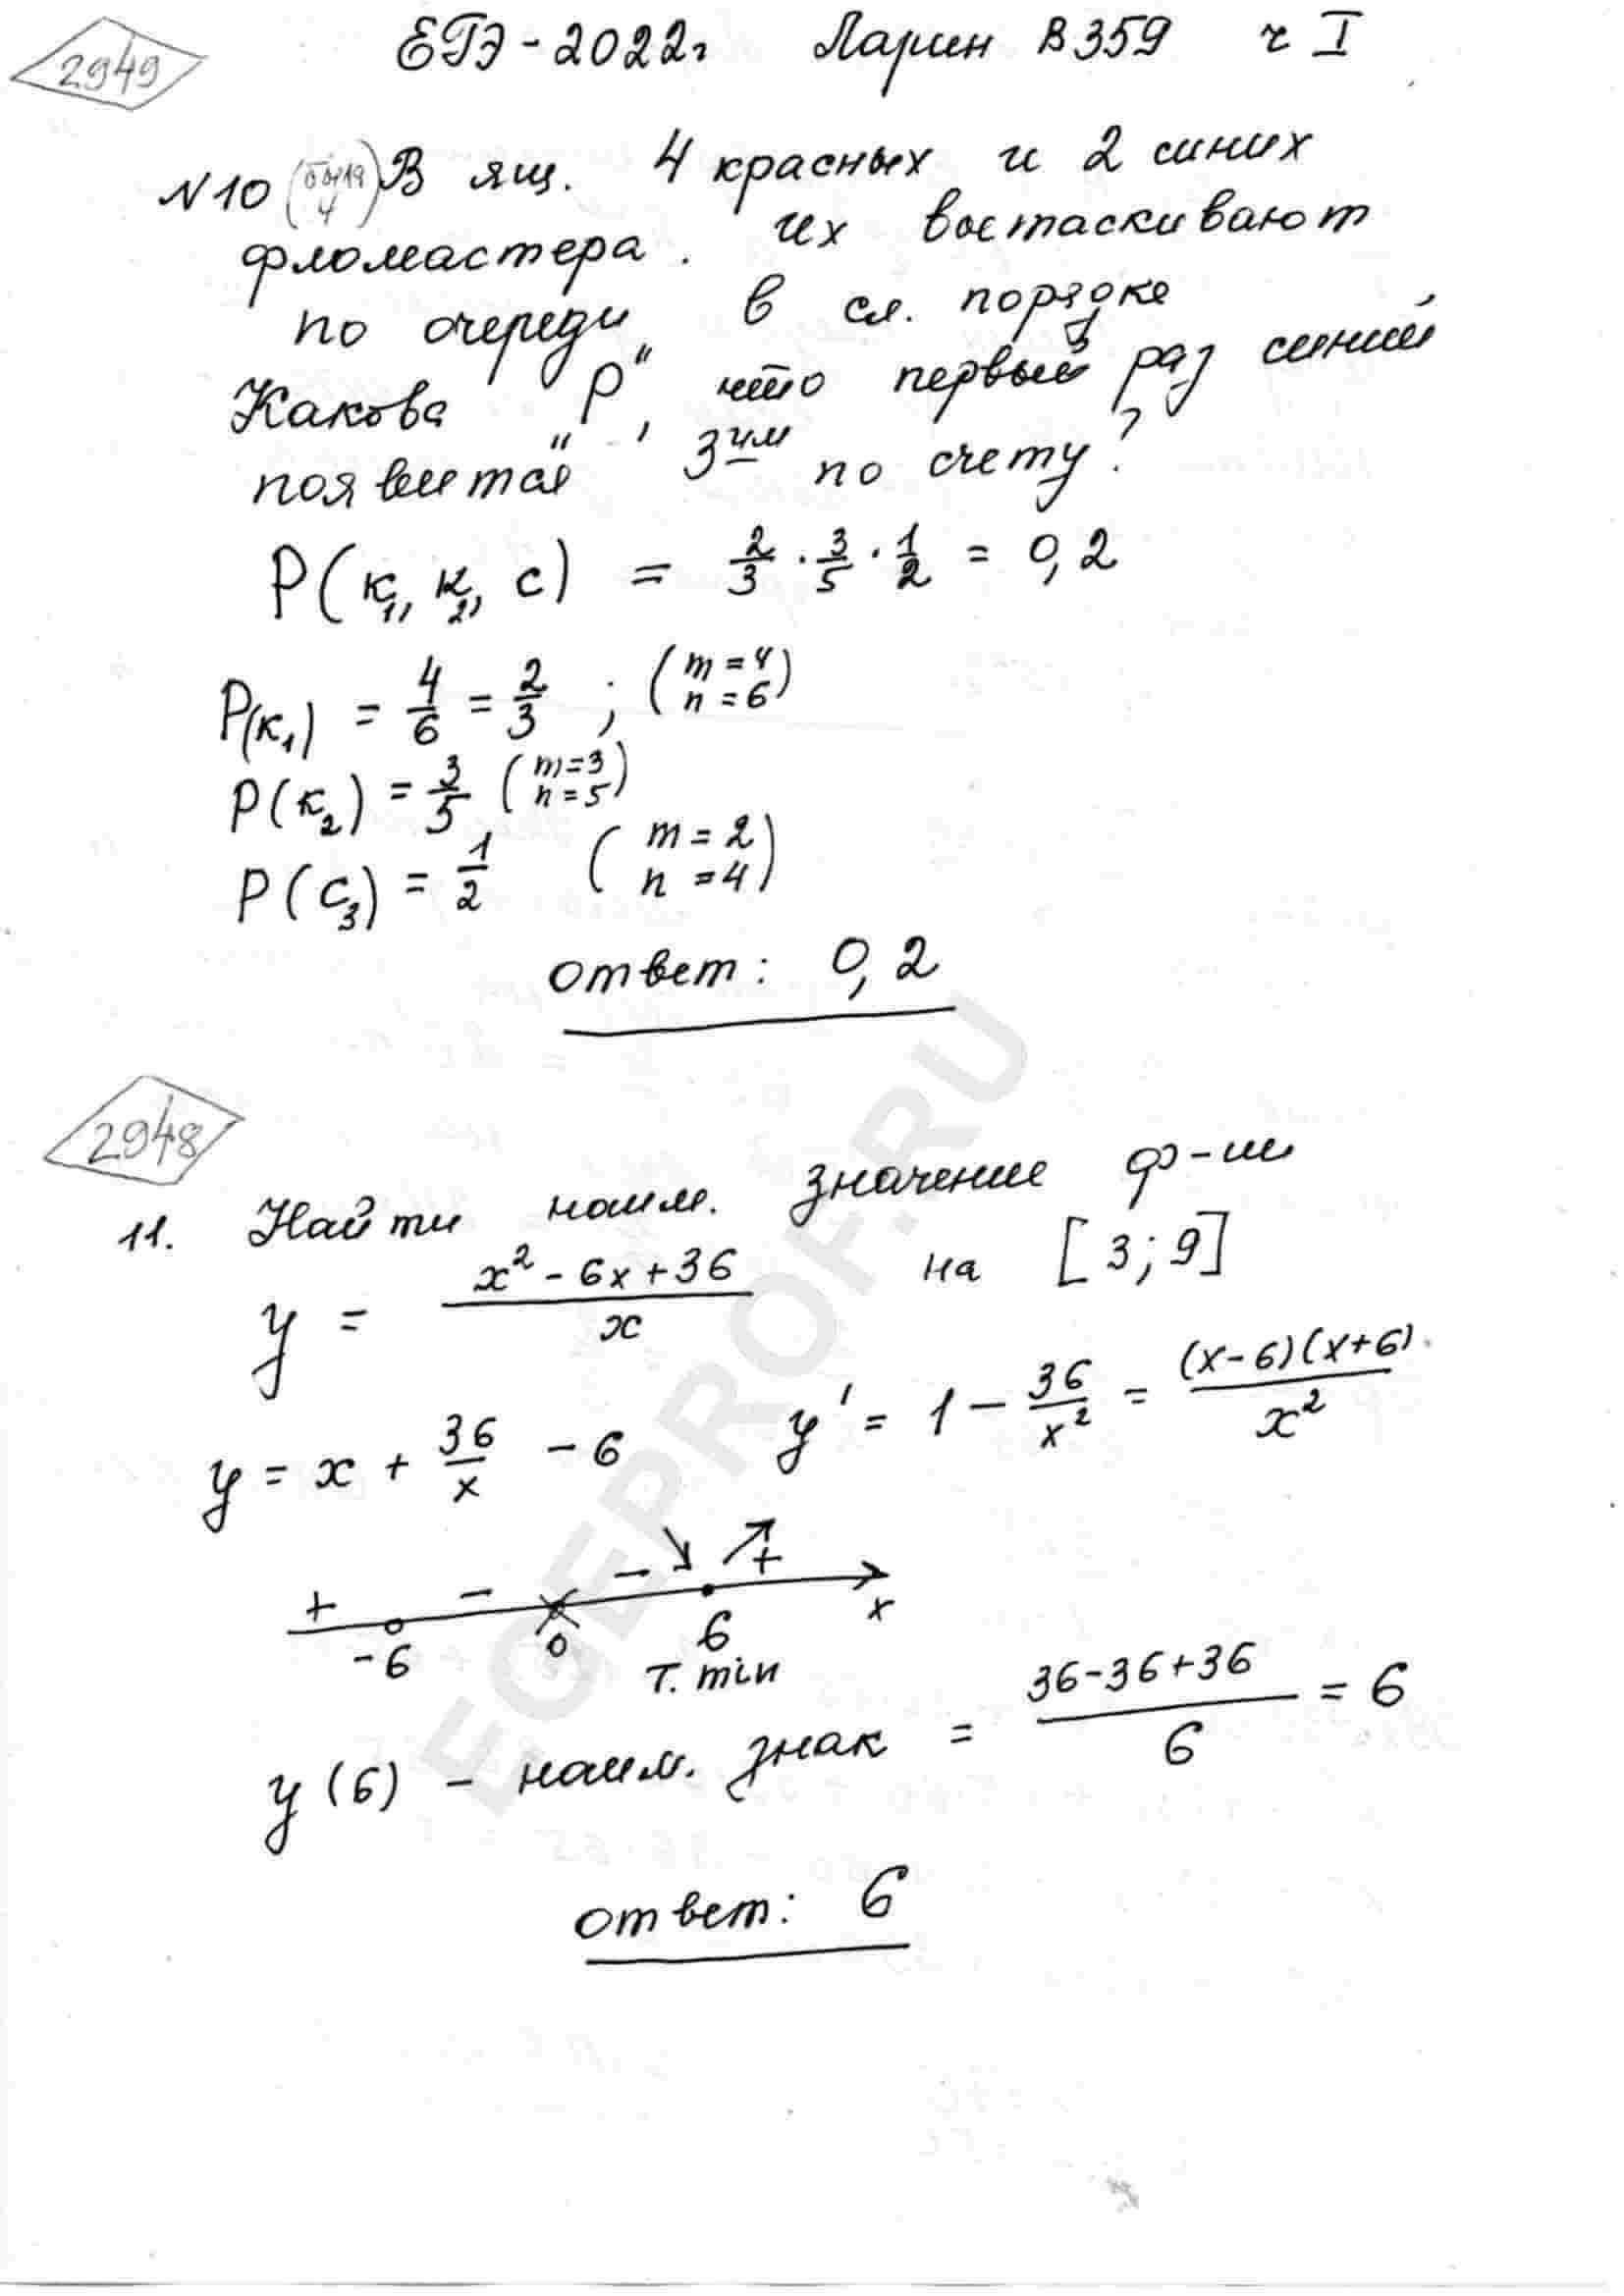 2949
ЕГЭ-2022г Ларин В359 ч I
N10 В ящ. 4 красных и 2 синих
фломастера. Их выстаскивают
по очереди в сл. порядке
Какова "P", что первый раз синий
появится 3им по счету?
P(к₁, к₂, с) = 2/3 · 3/5 · 1/2 = 0,2
P(к₁) = 4/6 = 2/3 ; (m=4 n=6)
P(к₂) = 3/5 (m=3 n=5)
P(с₃) = 1/2 (m=2 n=4)
ответ: 0,2
2948
11. Найти наим. значение ф-ии
y = (x² - 6x + 36)/x на [3; 9]
y = x + 36/x - 6 y' = 1 - 36/x² = (x-6)(x+6)/x²
+ - - ↘ ↗ +
-6 0 6 x
т. min
y(6) - наим. знак = (36-36+36)/6 = 6
ответ: 6
EGEPROF.RU